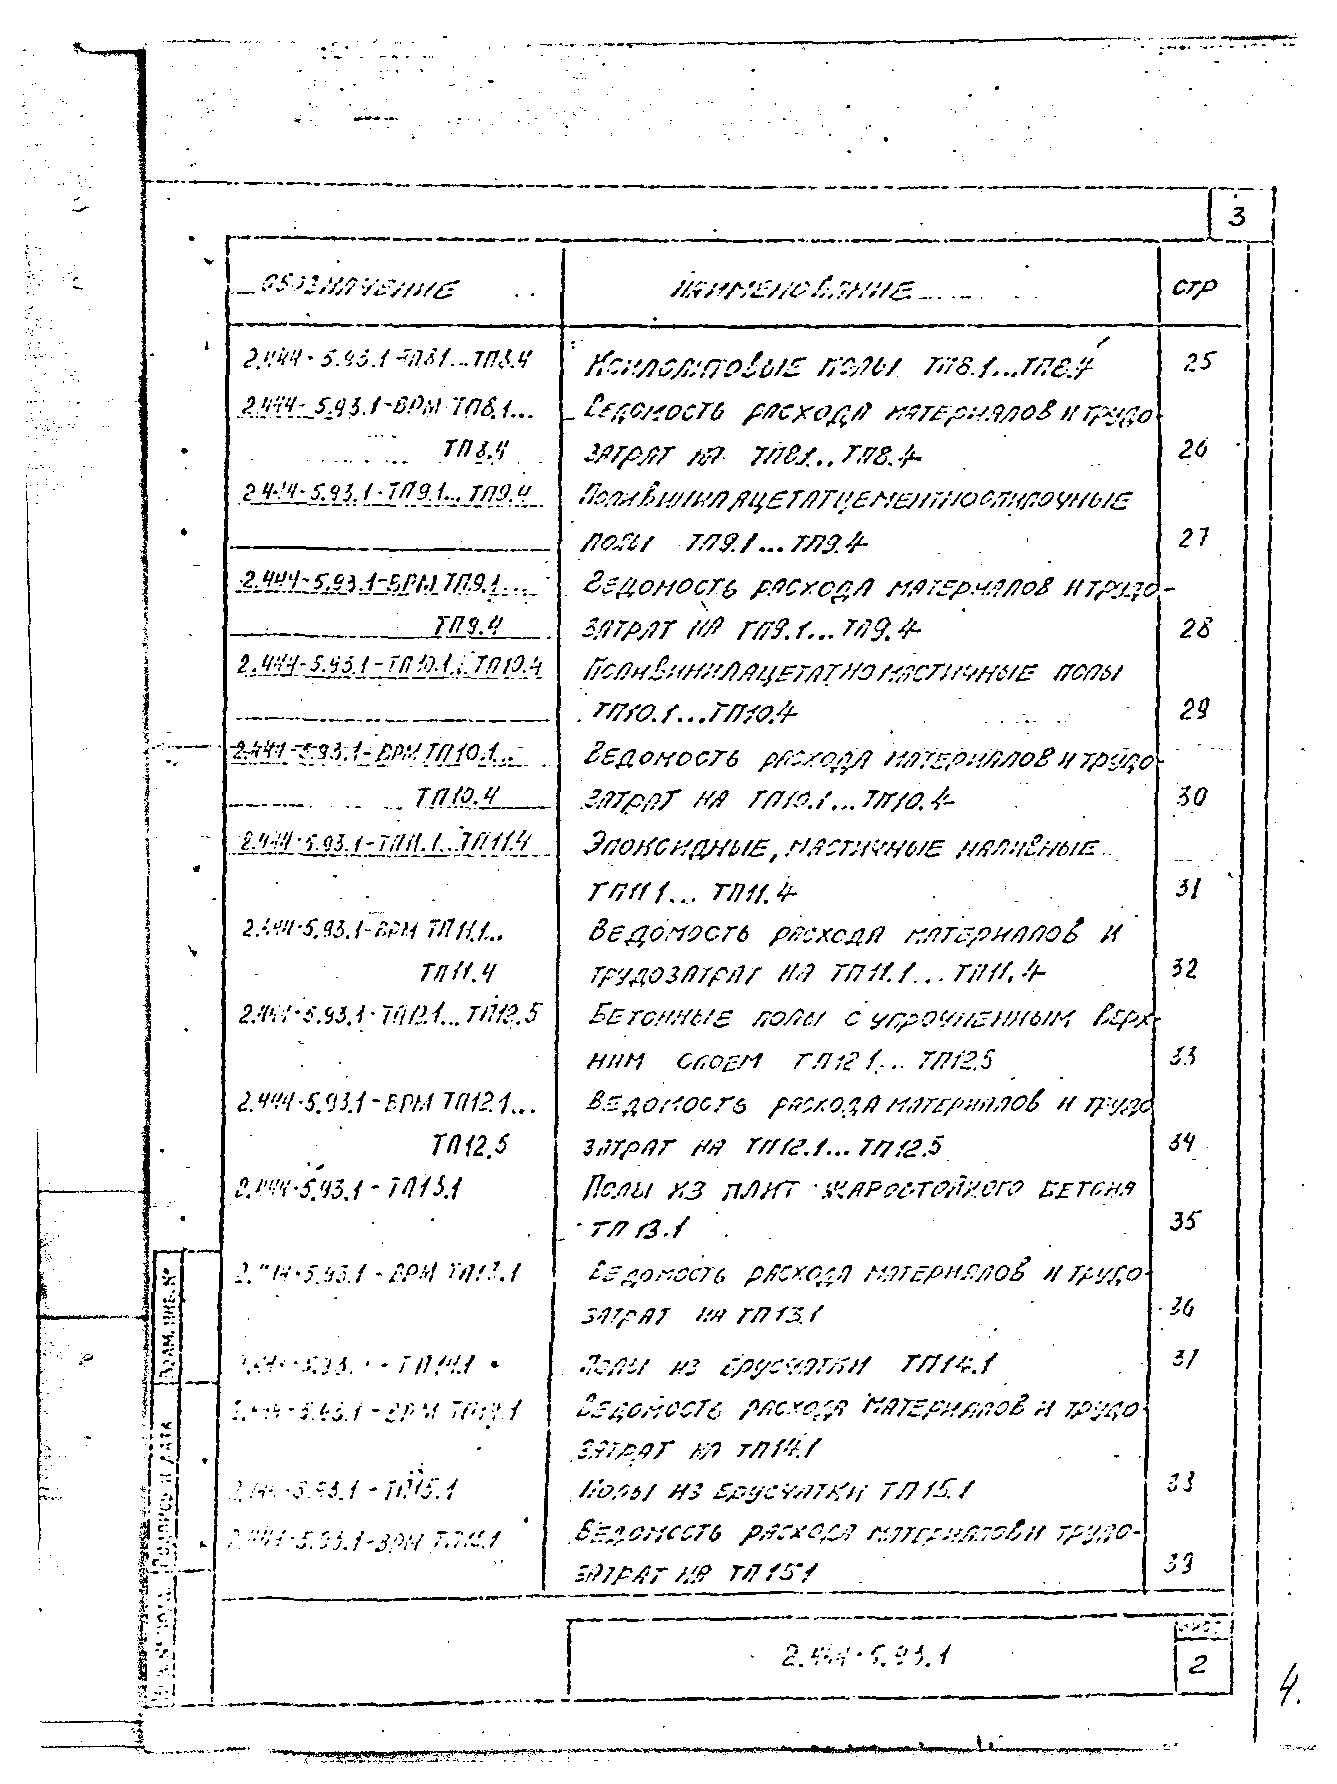 3
ОБОЗНАЧЕНИЕ НАИМЕНОВАНИЕ СТР
2.444-5.93.1-ТП8.1...ТП8.4 Ксилолитовые полы ТП8.1...ТП8.4 25
2.444-5.93.1-ВРМ ТП8.1... Ведомость расхода материалов и трудо-
ТП8.4 затрат на ТП8.1...ТП8.4 26
2.444-5.93.1-ТП9.1...ТП9.4 Поливинилацетатцементноопилочные
полы ТП9.1...ТП9.4 27
2.444-5.93.1-ВРМ ТП9.1... Ведомость расхода материалов и трудо-
ТП9.4 затрат на ТП9.1...ТП9.4 28
2.444-5.93.1-ТП10.1...ТП10.4 Поливинилацетатномастичные полы
ТП10.1...ТП10.4 29
2.444-5.93.1-ВРМ ТП10.1... Ведомость расхода материалов и трудо-
ТП10.4 затрат на ТП10.1...ТП10.4 30
2.444-5.93.1-ТП11.1...ТП11.4 Эпоксидные, мастичные наливные
ТП11.1...ТП11.4 31
2.444-5.93.1-ВРМ ТП11.1... Ведомость расхода материалов и
ТП11.4 трудозатрат на ТП11.1...ТП11.4 32
2.444-5.93.1-ТП12.1...ТП12.5 Бетонные полы с упрочненным верх-
ним слоем ТП12.1...ТП12.5 33
2.444-5.93.1-ВРМ ТП12.1... Ведомость расхода материалов и трудо
ТП12.5 затрат на ТП12.1...ТП12.5 34
2.444-5.93.1-ТП13.1 Полы из плит жаростойкого бетона
ТП13.1 35
2.444-5.93.1-ВРМ ТП13.1 Ведомость расхода материалов и трудо-
затрат на ТП13.1 36
2.444-5.93.1-ТП14.1 Полы из брусчатки ТП14.1 37
2.444-5.93.1-ВРМ ТП14.1 Ведомость расхода материалов и трудо-
затрат на ТП14.1
2.444-5.93.1-ТП15.1 Полы из брусчатки ТП15.1 33
2.444-5.93.1-ВРМ Ведомость расхода материалов и трудо-
затрат на ТП15.1 39
ВЗАМ. ИНВ. №
ПОДПИСЬ И ДАТА
2.444-5.93.1
ЛИСТ
2
4.